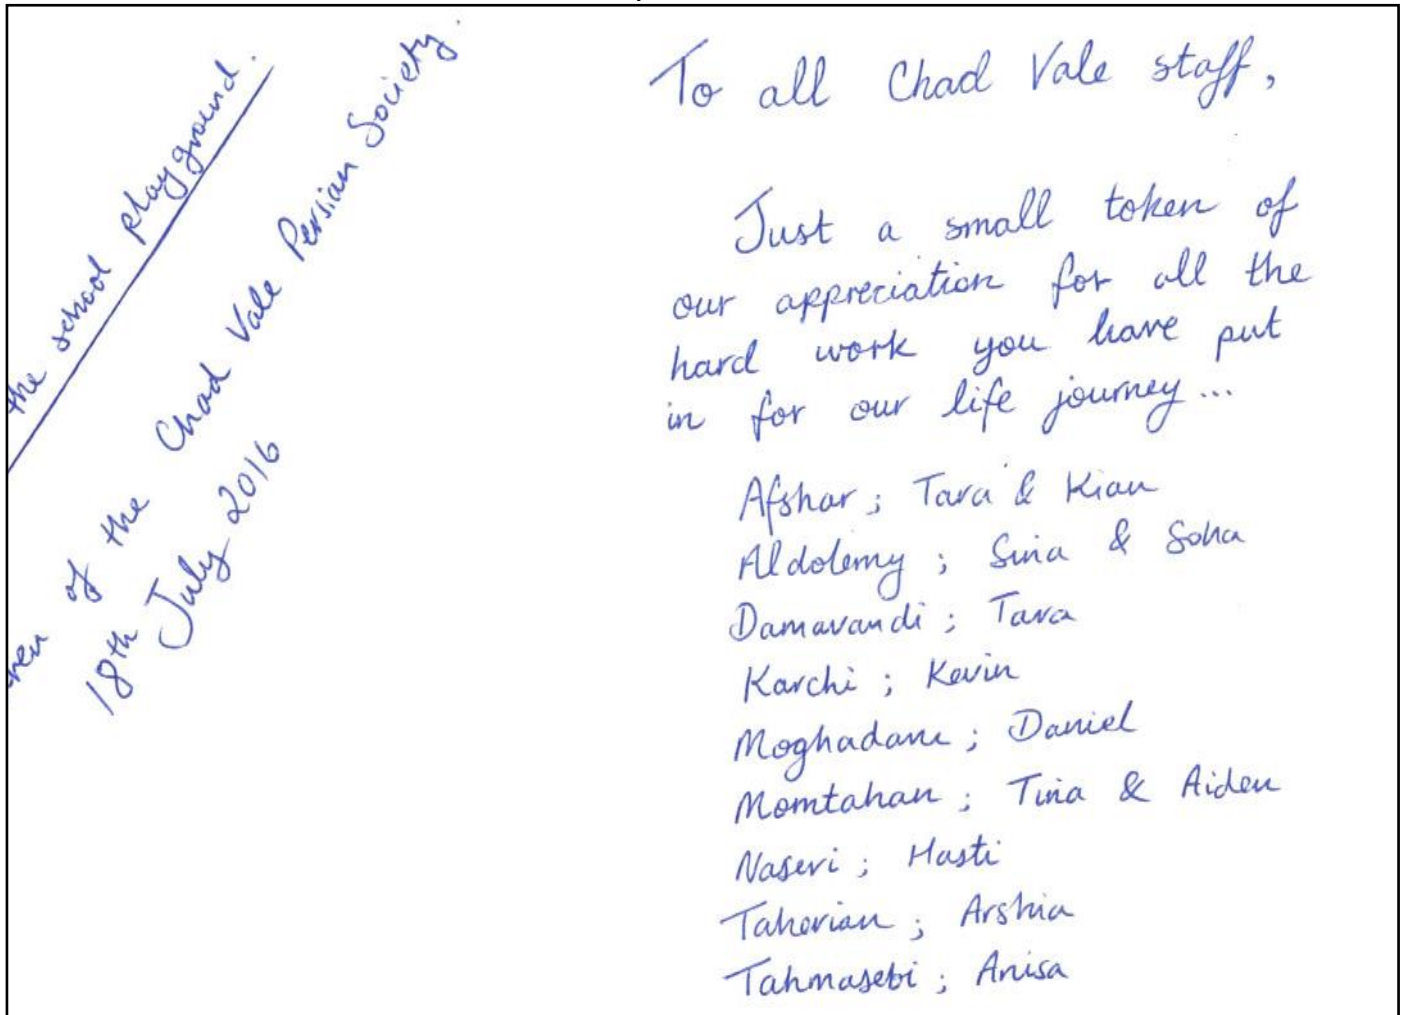 the school playground.
of the Chad Vale Persian Society.
18th July 2016
To all Chad Vale staff,
Just a small token of
our appreciation for all the
hard work you have put
in for our life journey...
Afshar ; Tara & Kian
Aldolemy ; Sina & Soha
Damavandi ; Tara
Karchi ; Kevin
Moghadam ; Daniel
Momtahan ; Tina & Aiden
Naseri ; Hasti
Taherian ; Arshia
Tahmasebi ; Anisa